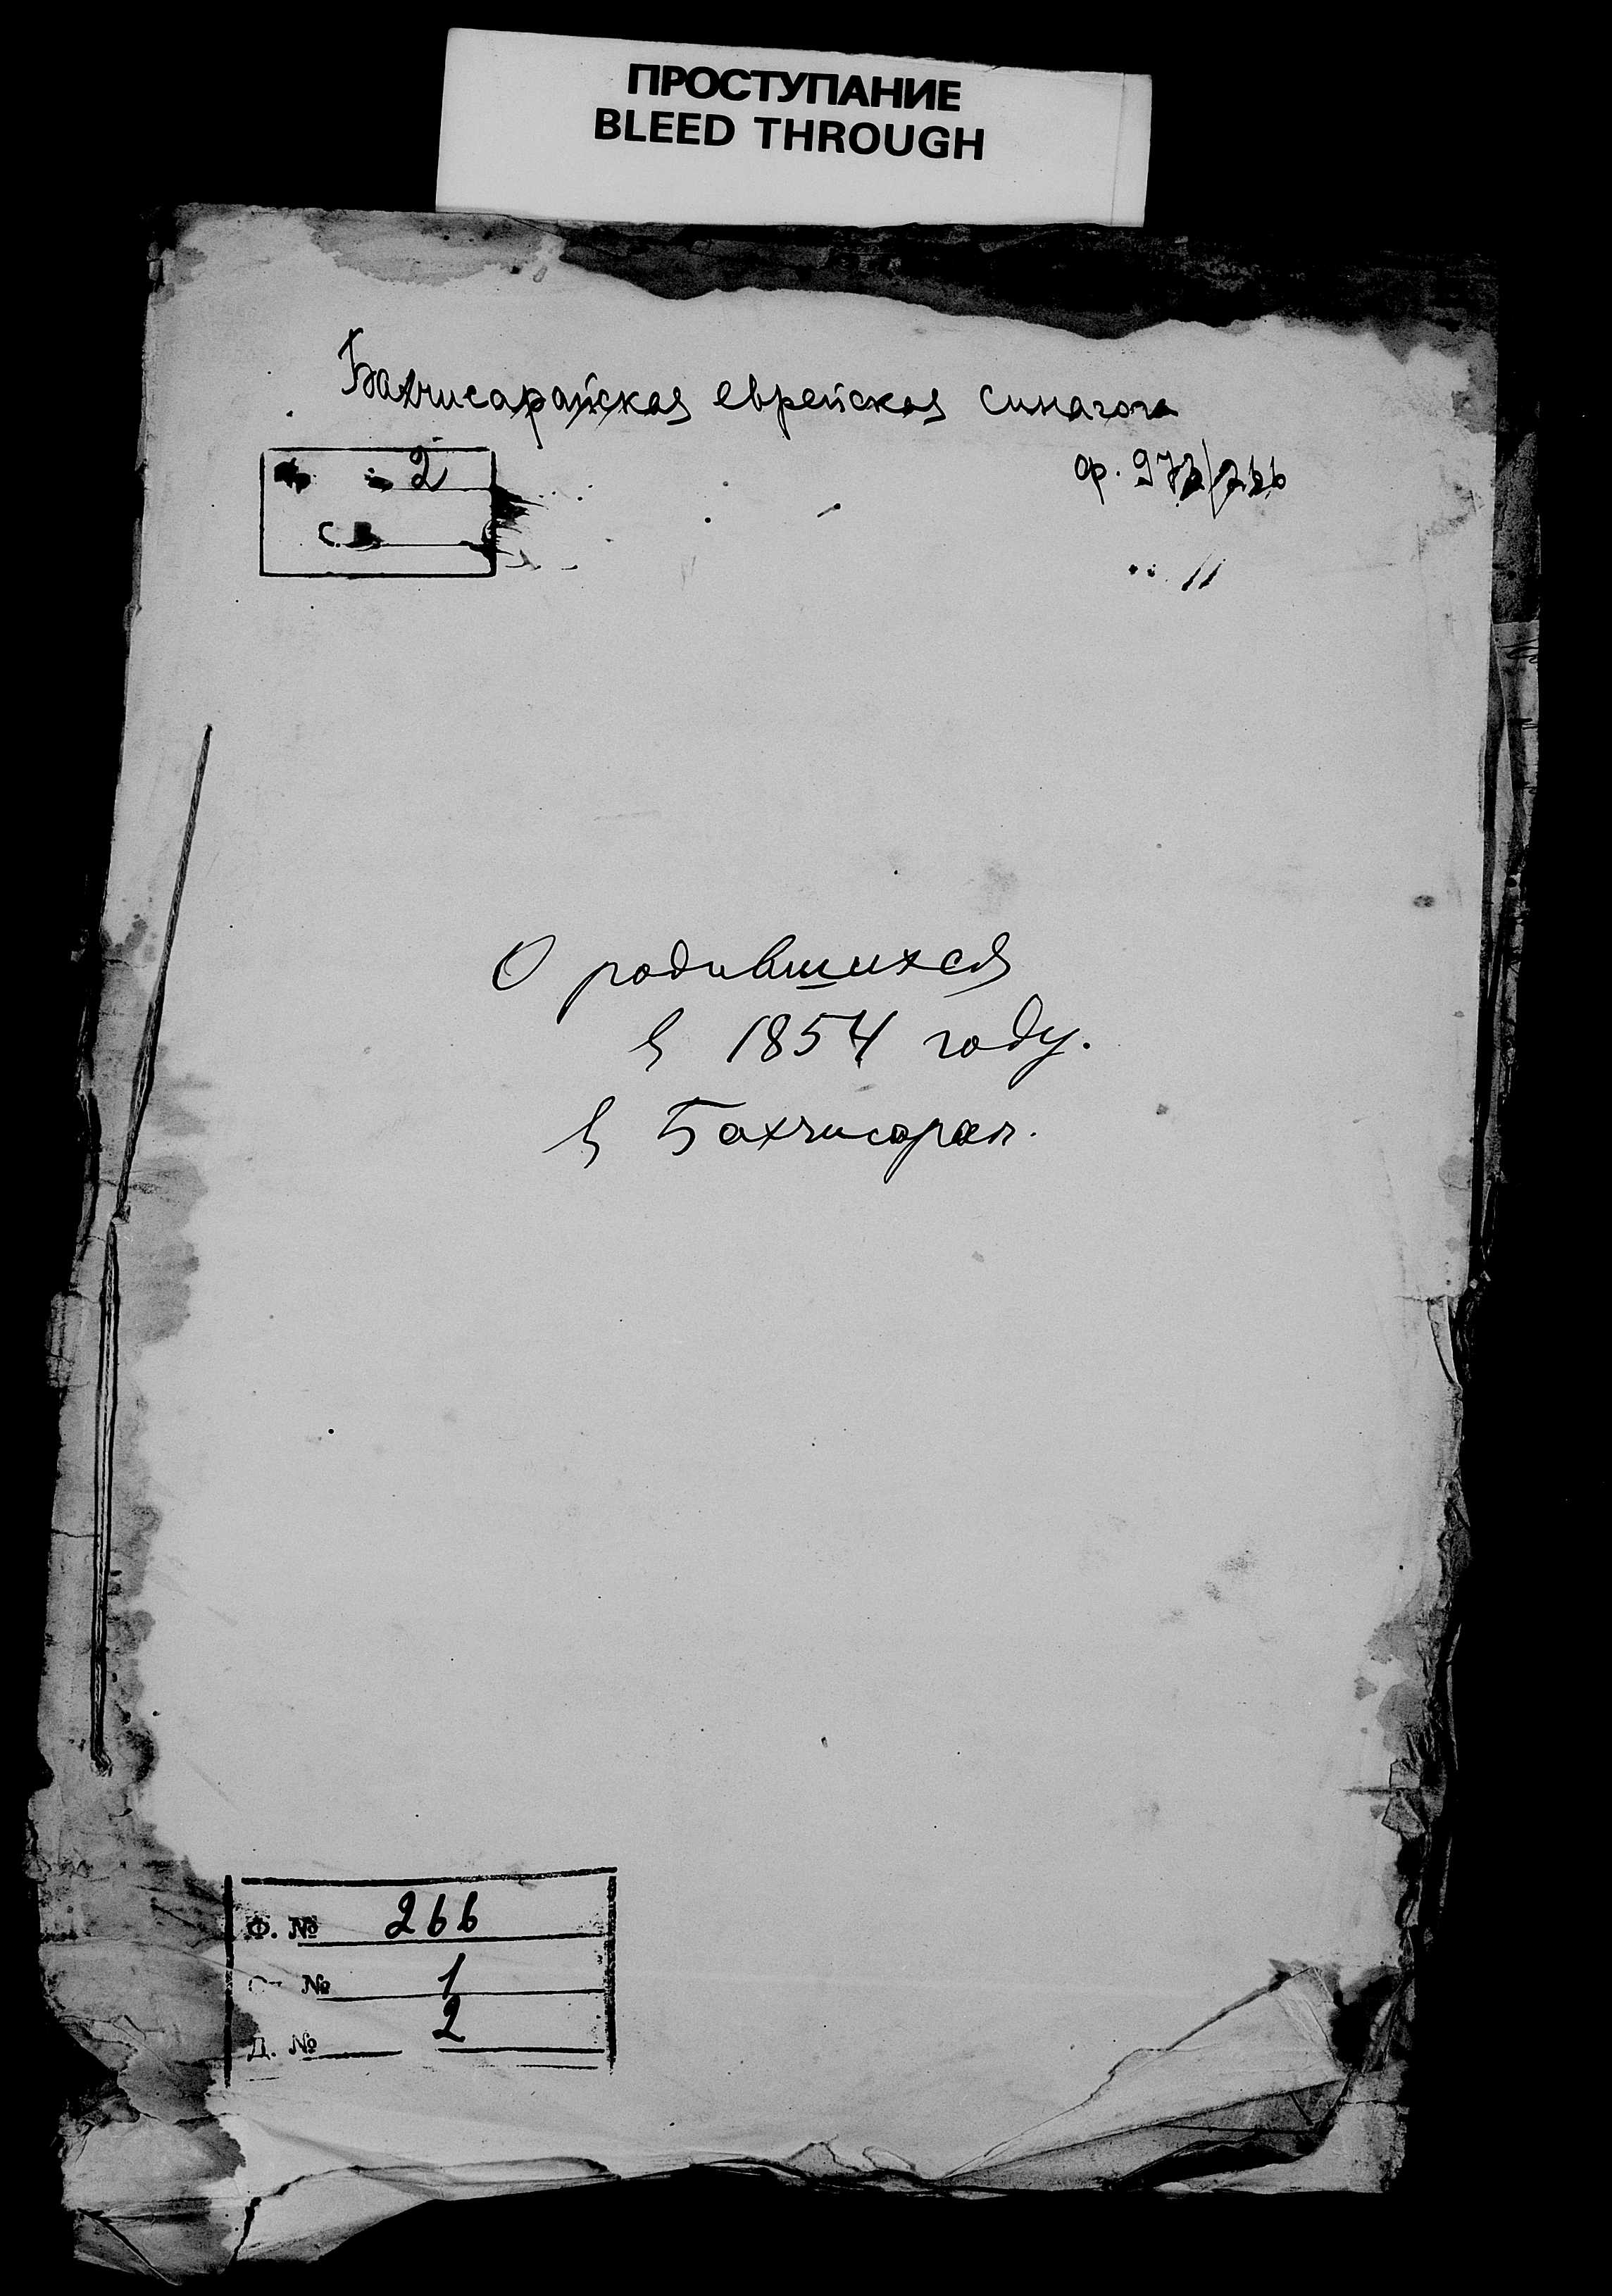 ПРОСТУПАНИЕ
BLEED THROUGH
Бахчисарайская еврейская синагога
2
ф. 972/266
11
О родившихся
в 1854 году.
в Бахчисарае.
Ф. № 266
№ 1
Д. № 2